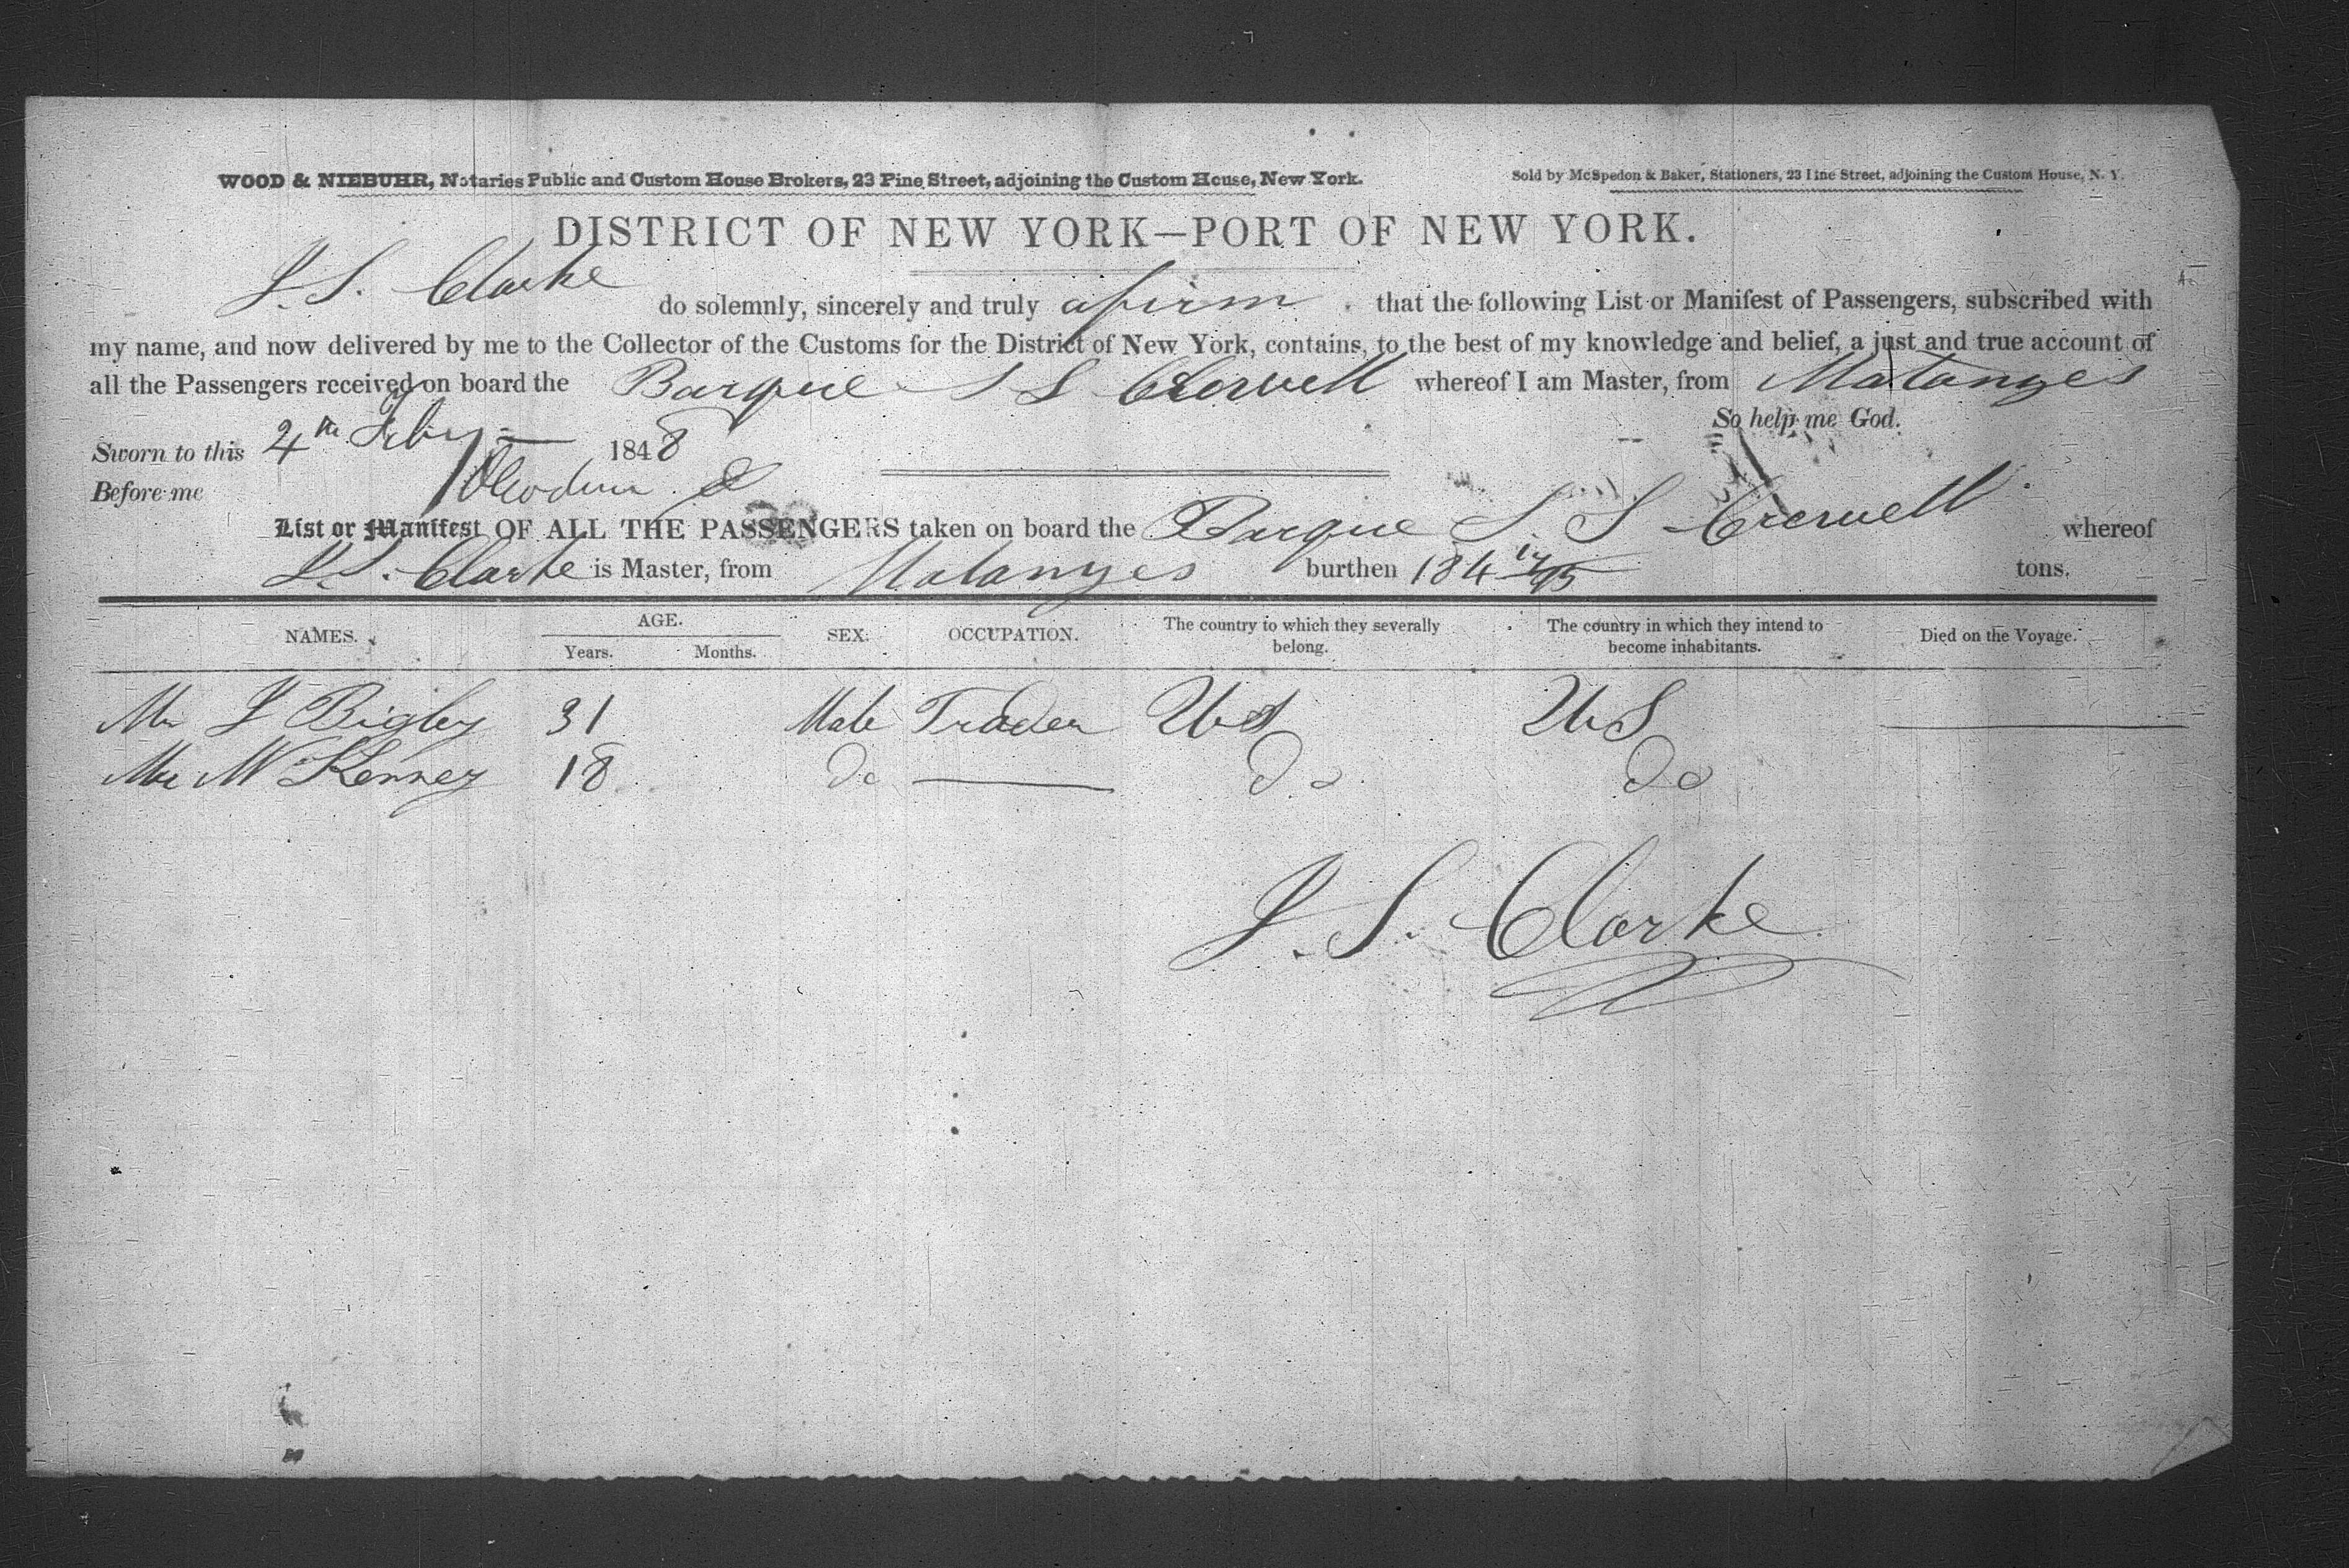 WOOD & NIEBUHR, Notaries Public and Custom House Brokers, 23 Pine Street, adjoining the Custom House, New York.
Sold by McSpedon & Baker, Stationers, 23 Pine Street, adjoining the Custom House, N. Y.
DISTRICT OF NEW YORK—PORT OF NEW YORK.
J. S. Clarke do solemnly, sincerely and truly afirm that the following List or Manifest of Passengers, subscribed with
my name, and now delivered by me to the Collector of the Customs for the District of New York, contains, to the best of my knowledge and belief, a just and true account of
all the Passengers received on board the Barque whereof I am Master, from Matanzes
So help me God.
Sworn to this 4th Feby 1848
Before me
List or Manifest OF ALL THE PASSENGERS taken on board the Barque whereof
J. S. Clarke is Master, from Matanzes burthen 184 17/95 tons.
NAMES. AGE. SEX. OCCUPATION. The country to which they severally belong. The country in which they intend to become inhabitants. Died on the Voyage.
Years. Months.
Mr J Bigley 31 Male Trader US US
Mr McKenney 18 Do Do Do
J. S. Clarke